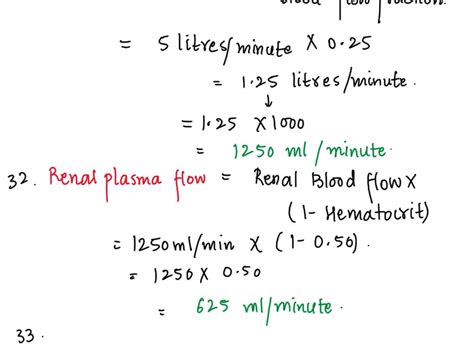 = 5 litres/minute X 0.25
= 1.25 litres/minute.
↓
= 1.25 X 1000
= 1250 ml/minute.
32. Renal plasma flow = Renal Blood flow X
(1- Hematocrit)
= 1250ml/min X (1- 0.50).
= 1250 X 0.50
= 625 ml/minute.
33.